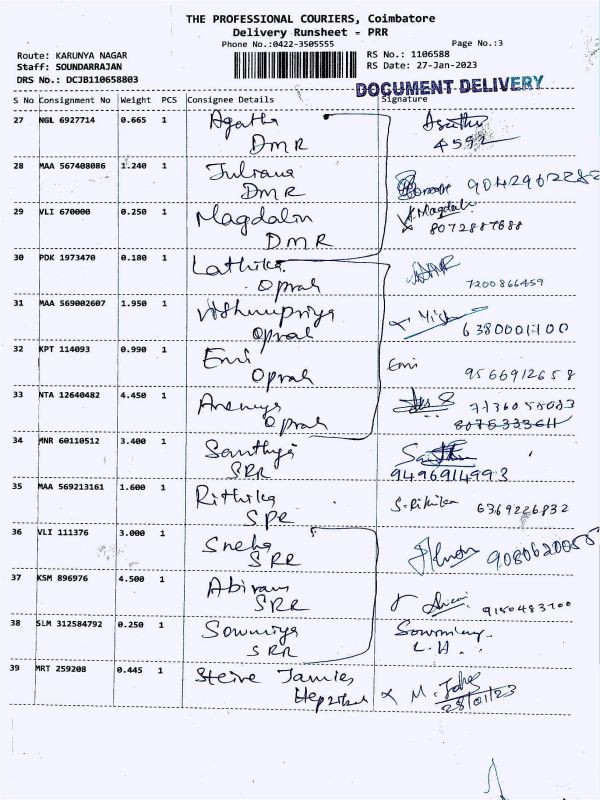 THE PROFESSIONAL COURIERS, Coimbatore
Delivery Runsheet - PRR
Phone No.:0422-3505555
Page No.:3
Route: KARUNYA NAGAR
RS No.: 1106588
Staff: SOUNDARRAJAN
RS Date: 27-Jan-2023
DRS No.: DCJB110658803
DOCUMENT DELIVERY
S No Consignment No Weight PCS Consignee Details Signature
27 NGL 6927714 0.665 1 Agatha
DMR 4592
28 MAA 567408086 1.240 1 Juliana
DMR
29 VLI 670000 0.250 1 Magdalin Magdali
DMR 8072887688
30 PDK 1973470 0.180 1 Lathika
Oprah 7200866459
31 MAA 569002607 1.950 1 Vishnupriya
Oprah 6380001100
32 KPT 114093 0.990 1 Emi Emi
Oprah 9566912658
33 NTA 12640482 4.450 1
Oprah 8075333611
34 MNR 60110512 3.400 1 Santhiya
SRR 9496914993
35 MAA 569213161 1.600 1 Rithika S. Rithika
SPR 6369226832
36 VLI 111376 3.000 1 Sneha
SRR 9080620058
37 KSM 896976 4.500 1 Abirami
SRR 9150483700
38 SLM 312584792 0.250 1 Sowmiya Sowmiya
SRR L.H.
39 MRT 259208 0.445 1 Steive Jamies
Hepzibah 28/01/23